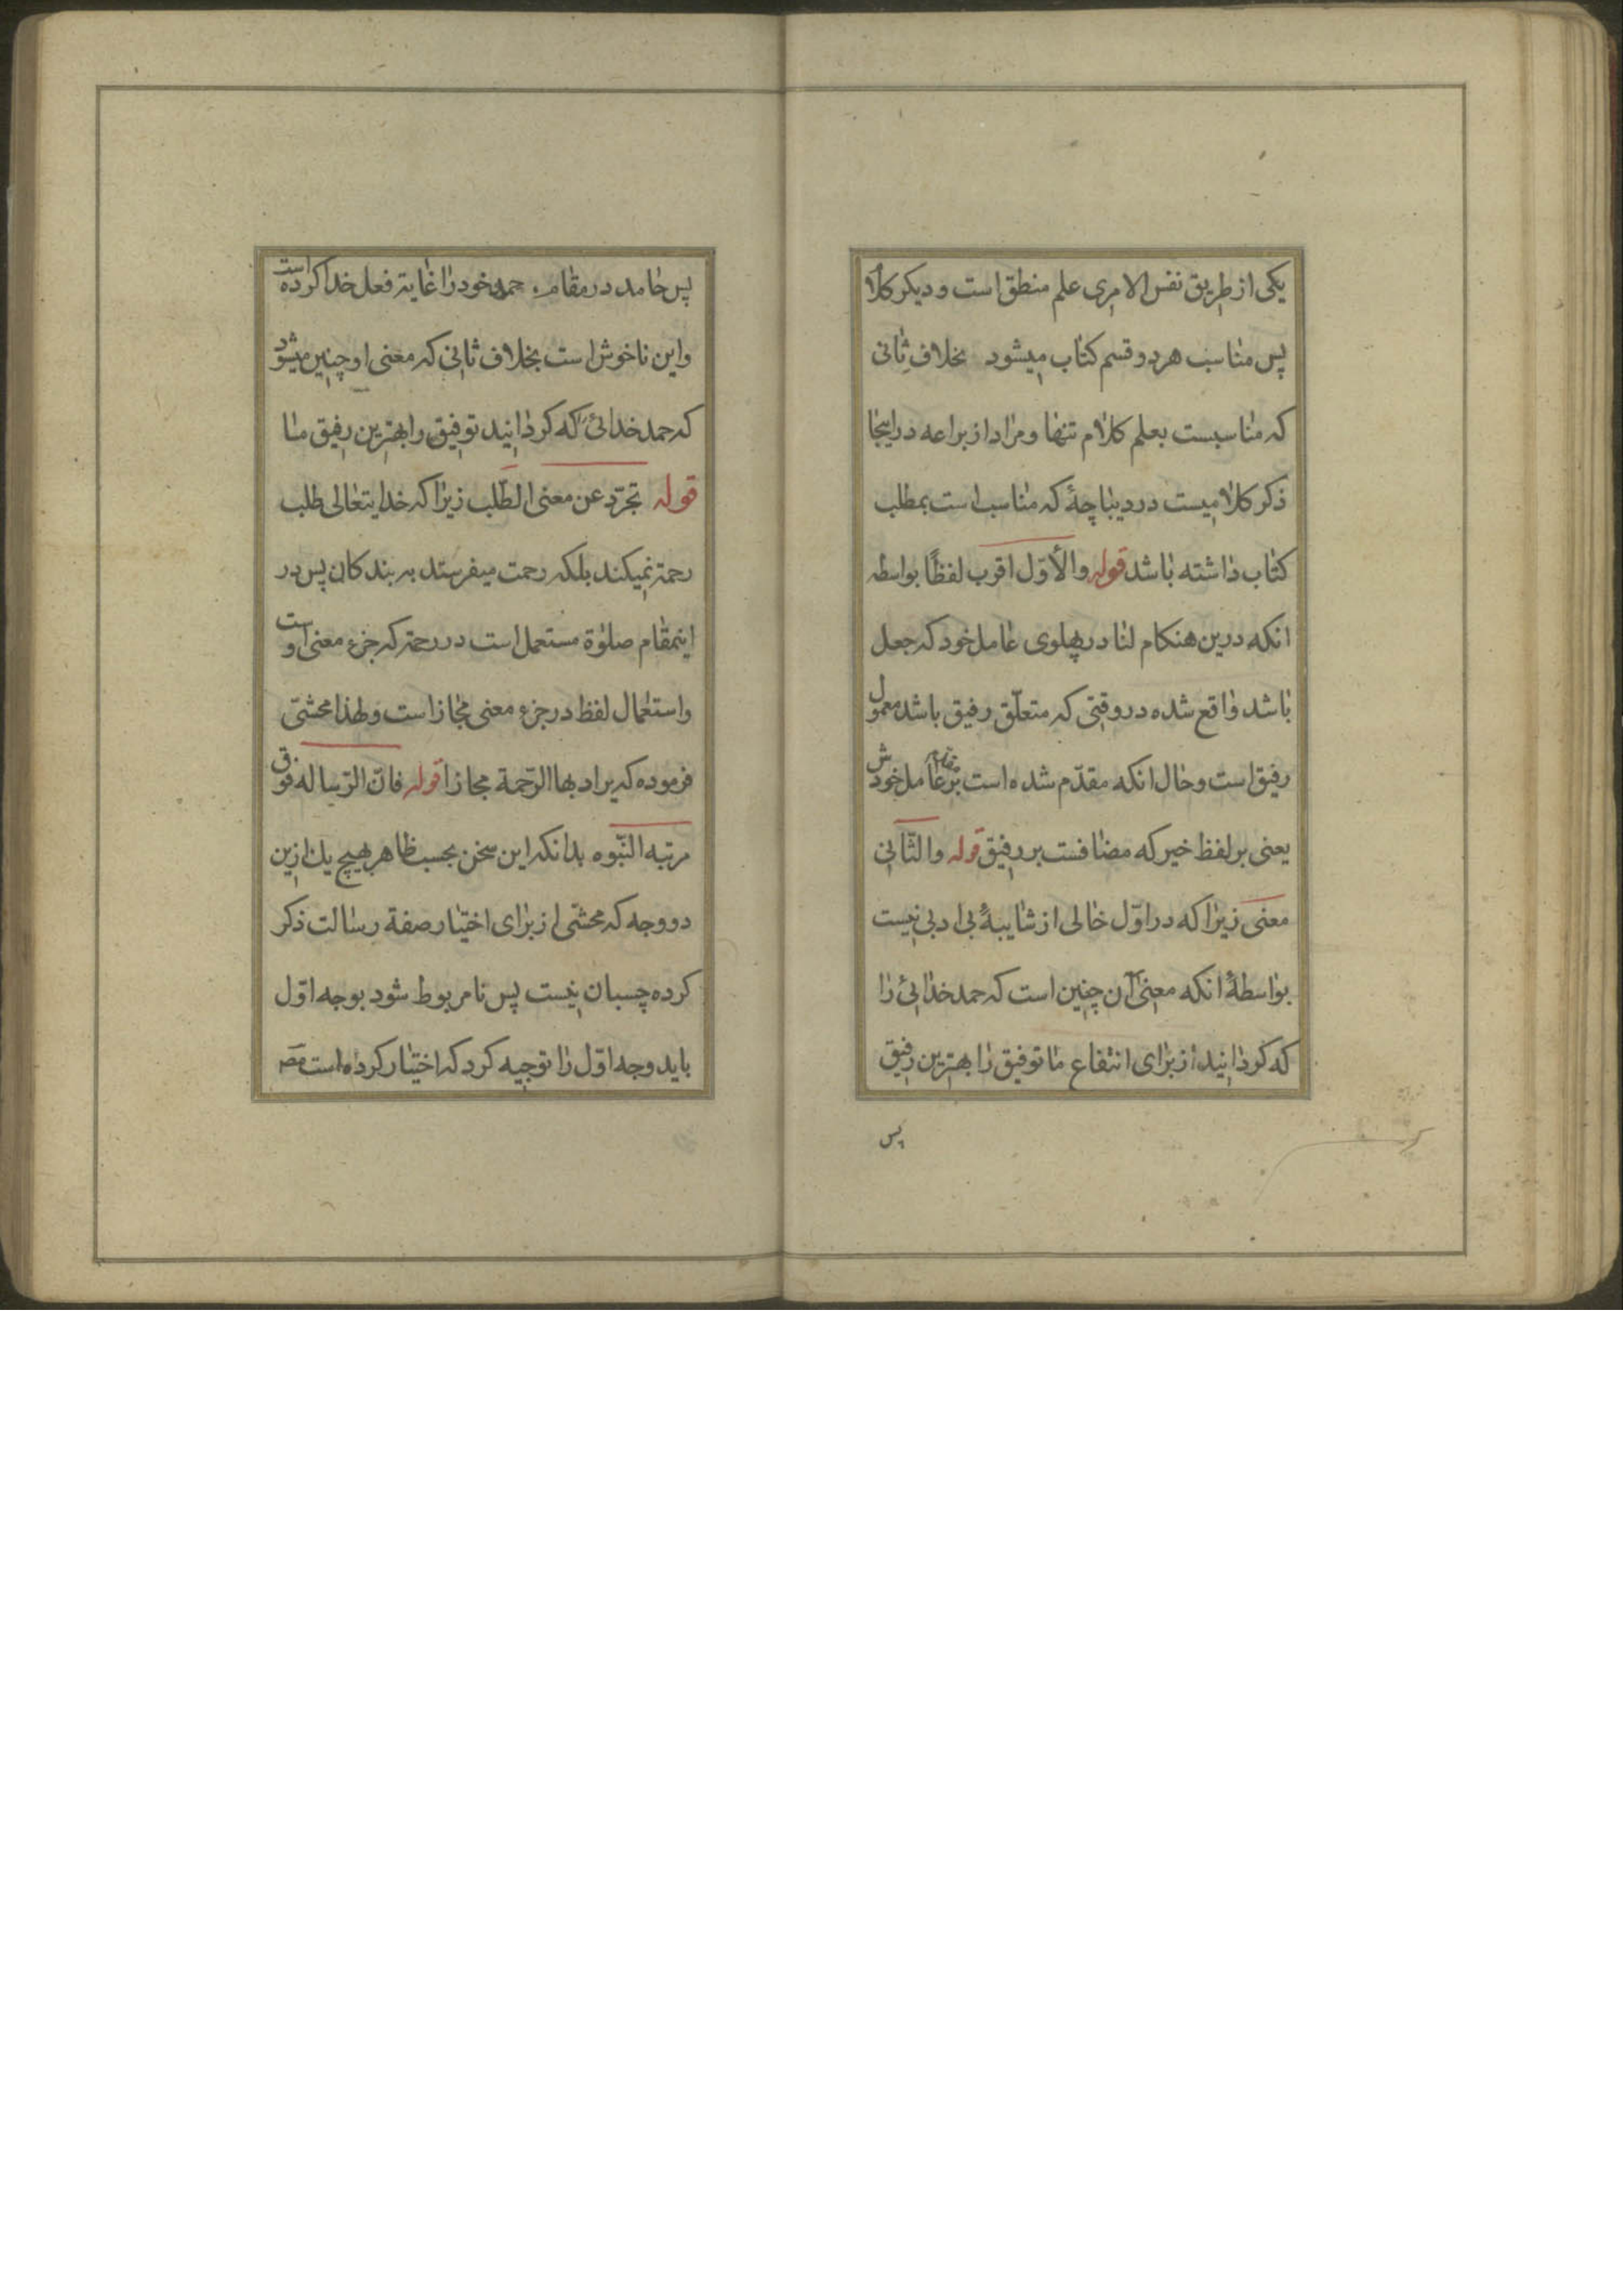 یکی از طریق نفس الامری علم منطق است و دیکر کلام
پس مناسب هر دو قسم کتاب میشود بخلاف ثانی
که مناسبست بعلم کلام تنها و مراد از براعه در اینجا
ذکر کلامیست در دیباچۀ که مناسب است بمطلب
کتاب داشته باشد قوله والأوّل اقرب لفظًا بواسطه
انکه درین هنکام لنا در پهلوی عامل خود که جعل
باشد واقع شده در وقتی که متعلّق رفیق باشد معمول
رفیق است و حال انکه مقدّم شده است بر عامل خودش
یعنی بر لفظ خیر که مضافست بر رفیق قوله والثّانی
معنی زیرا که در اوّل خالی از شایبۀ بی ادبی نیست
بواسطۀ انکه معنی آن چنین است که حمد خدائی را
که کردانید از برای انتفاع ما توفیق را بهترین رفیق
پس
پس حامد در مقام حمد خود را غایة فعل خدا کرده است
و این ناخوش است بخلاف ثانی که معنی او چنین میشود
که حمد خدائی که کردانید توفیق را بهترین رفیق ما
قوله تجرّد عن معنی الطّلب زیرا که خدایتعالی طلب
رحمة نمیکند بلکه رحمت میفرستد به بندکان پس در
اینمقام صلوة مستعمل است در رحمة که جزء معنی اوست
و استعمال لفظ در جزء معنی مجاز است و لهذا محشّی
فرموده که یراد بها الرّحمة مجازا قوله فانّ الرّساله فوق
مرتبه النّبوه بدانکه این سخن بحسب ظاهر بهیچ یك ازین
دو وجه که محشّی از برای اختیار صفة رسالت ذکر
کرده چسبان نیست پس نامربوط شود بوجه اوّل
باید وجه اوّل را توجیه کرد که اختیار کرده است مصر